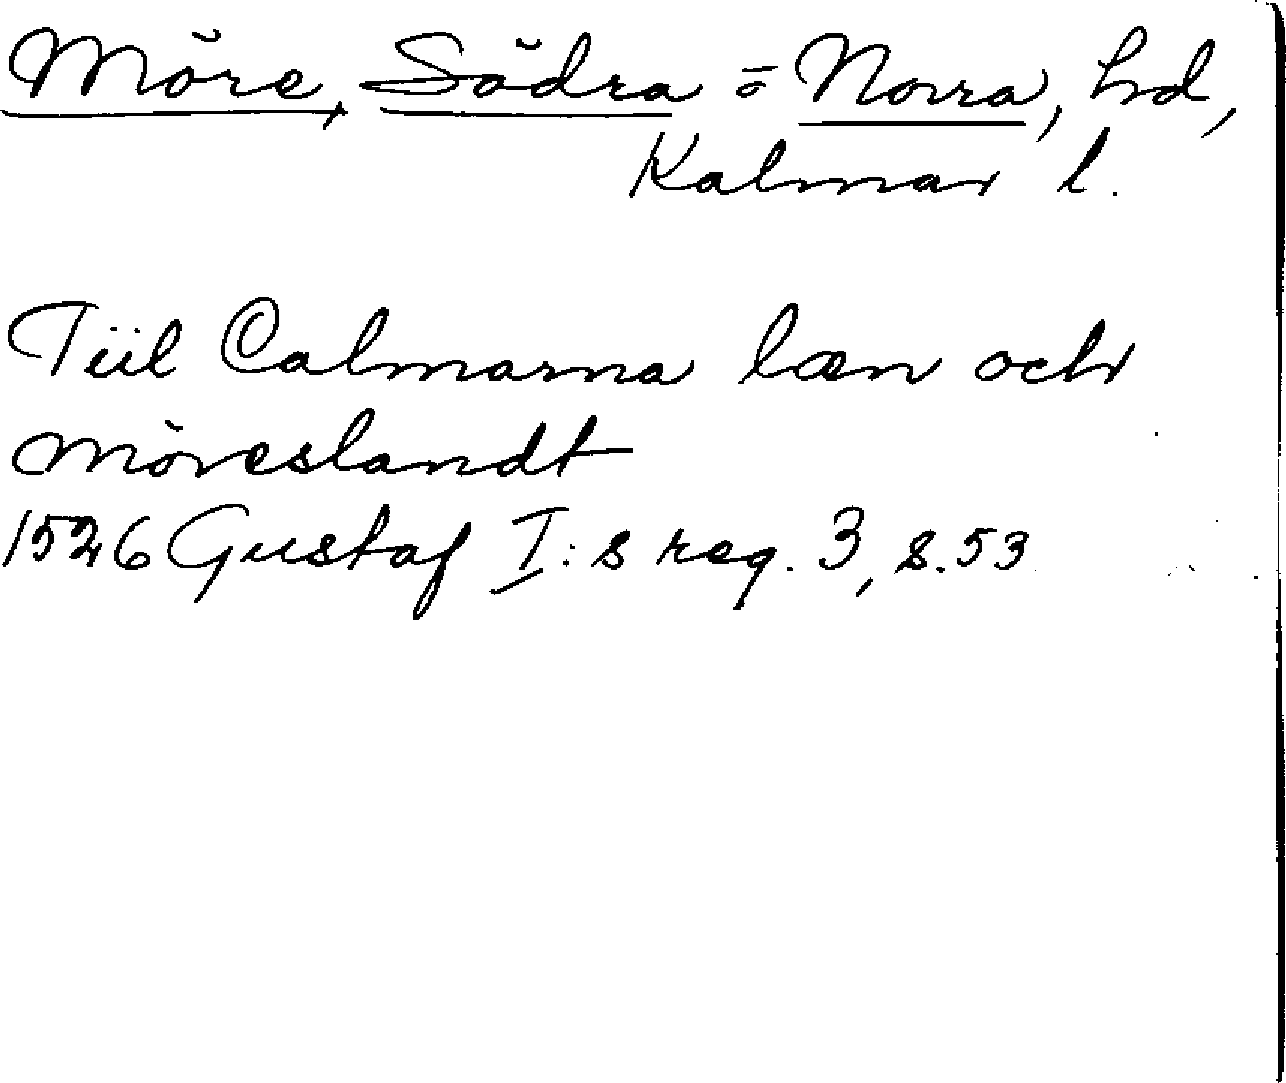 Möre, Södra o Norra, hd,
Kalmar l.
Tiil Calmarna læn och
möreslandt
1526 Gustaf I:s reg. 3, s. 53